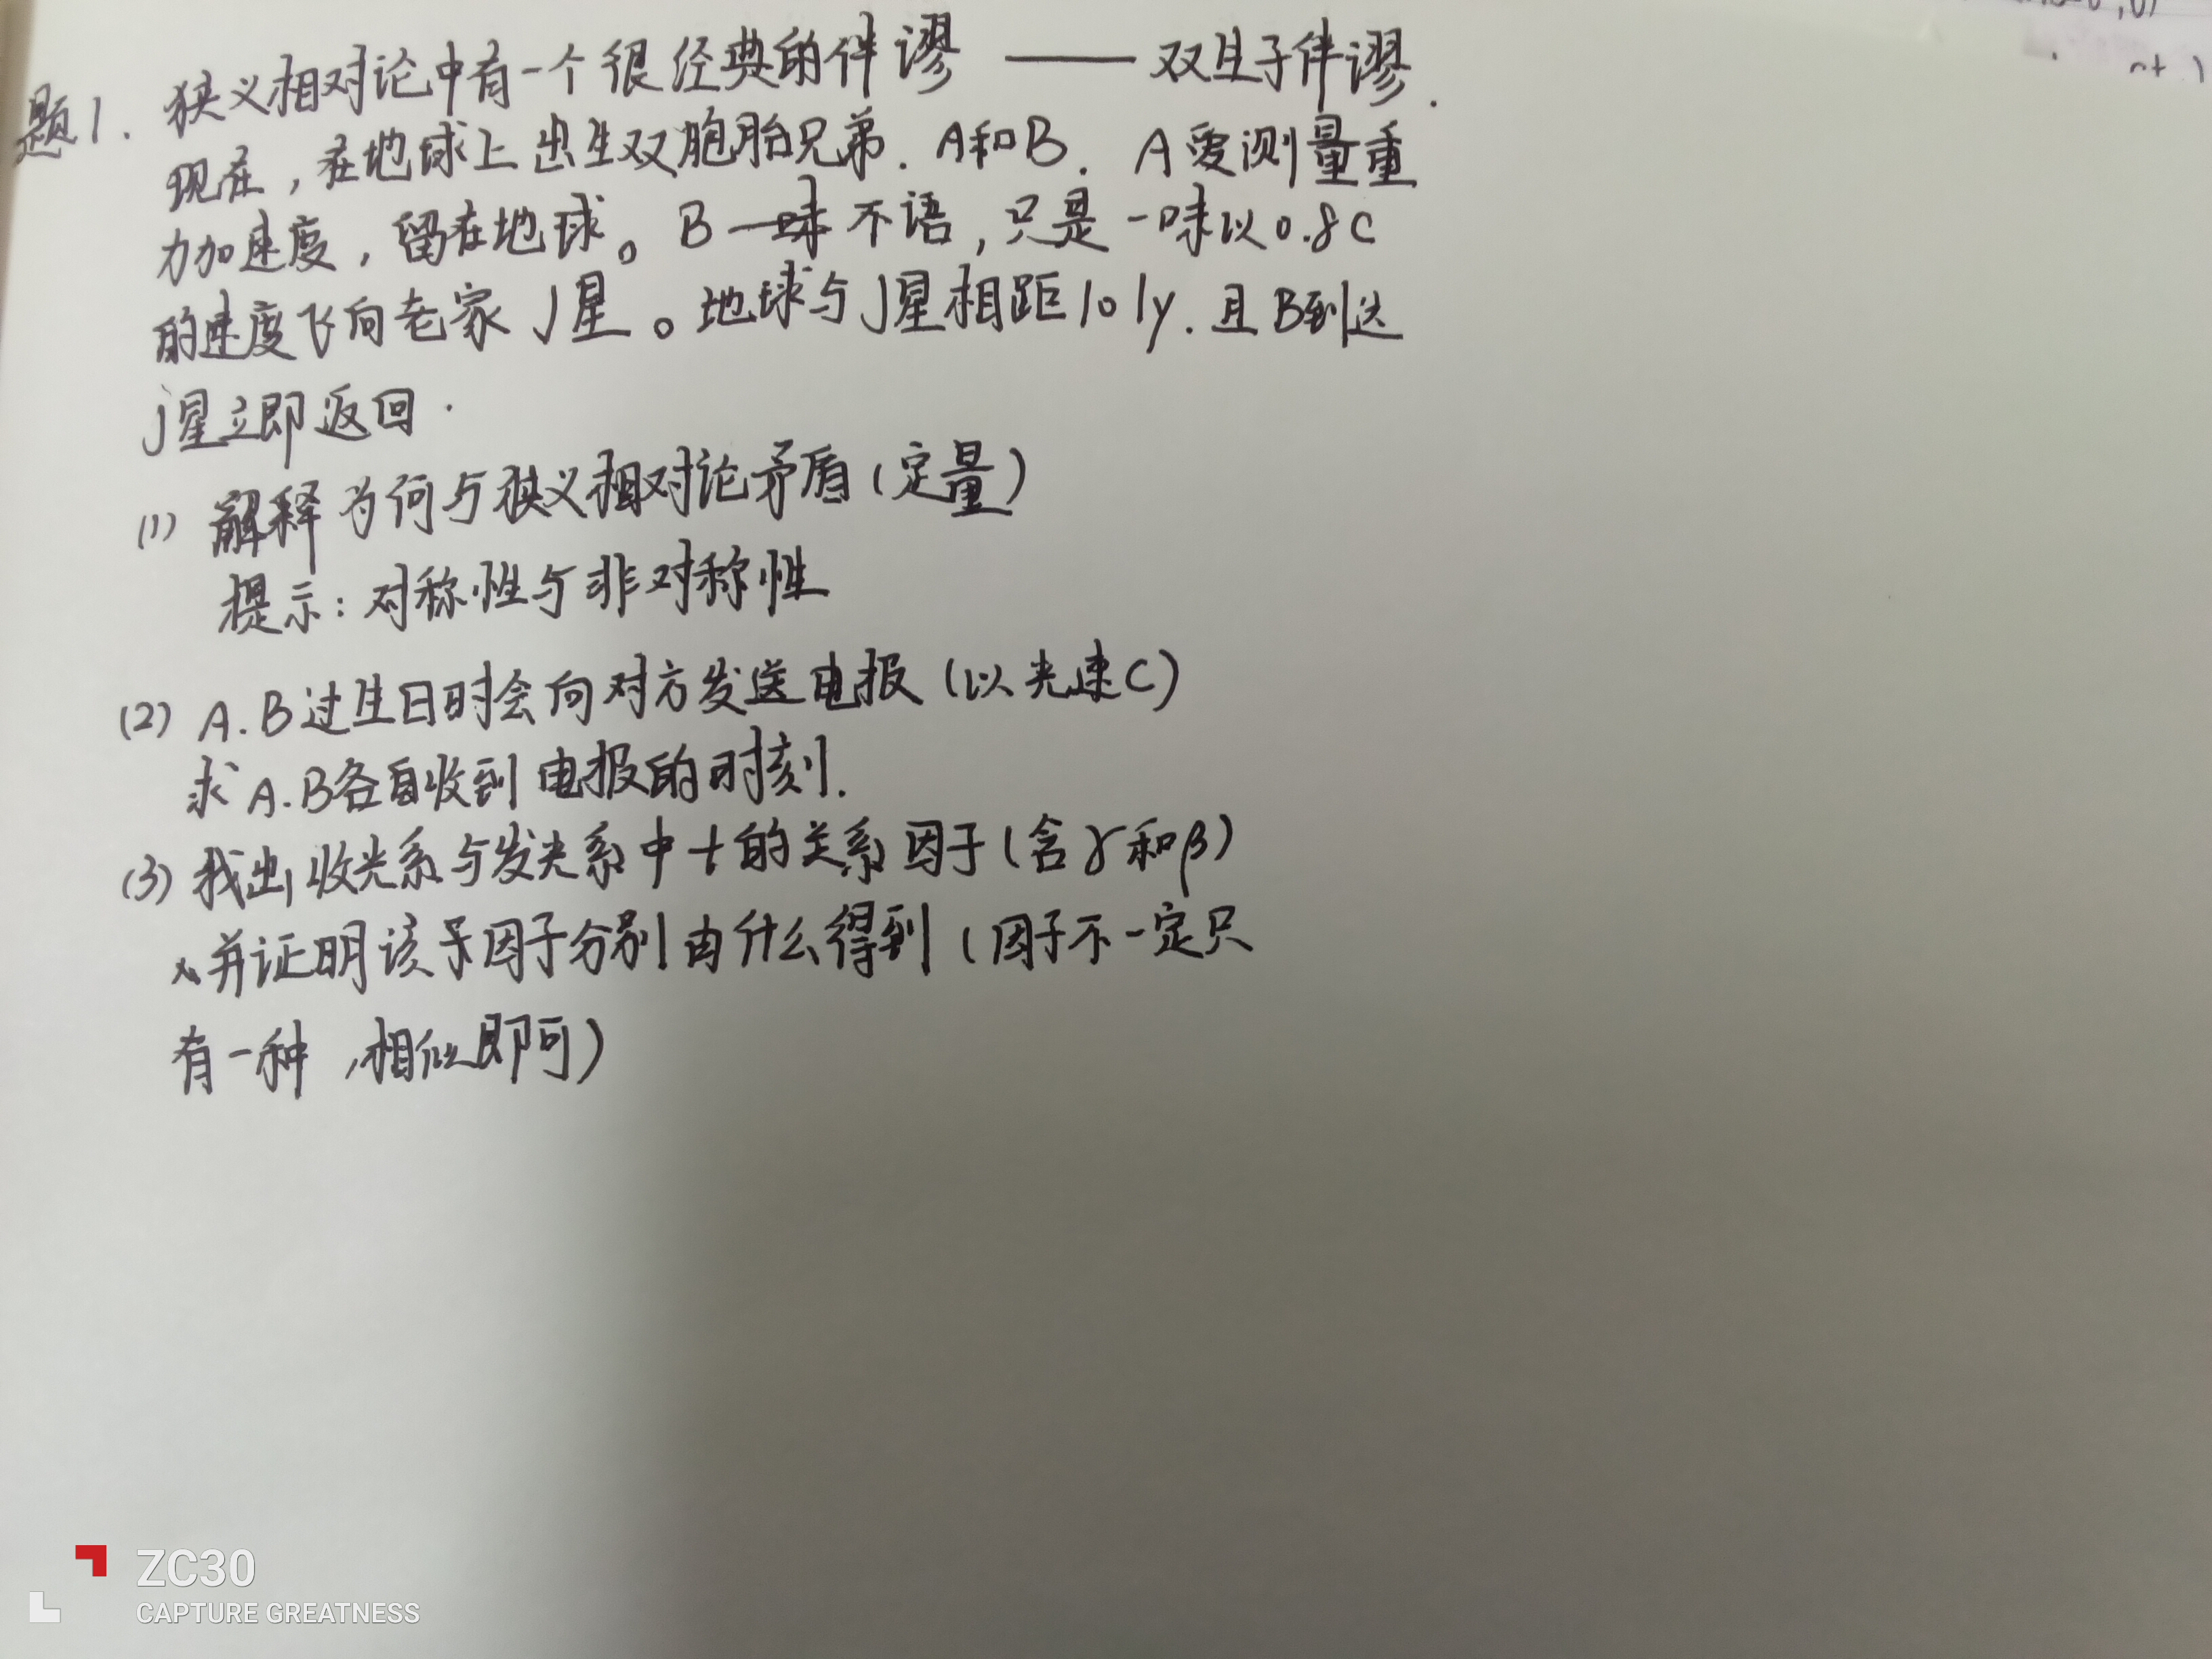 题1. 狭义相对论中有一个很经典的佯谬 —— 双生子佯谬.
现在，在地球上出生双胞胎兄弟. A和B. A爱测量重
力加速度，留在地球。B一味不语，只是一味以0.8C
的速度飞向老家J星。地球与J星相距10ly. 且B到达
J星立即返回.
(1) 解释为何与狭义相对论矛盾(定量)
提示: 对称性与非对称性
(2) A.B过生日时会向对方发送电报 (以光速C)
求A.B各自收到电报的时刻.
(3) 找出收光系与发光系中t的关系因子(含γ和β)
并证明该因子分别由什么得到 (因子不一定只
有一种，相似即可)
ZC30
CAPTURE GREATNESS